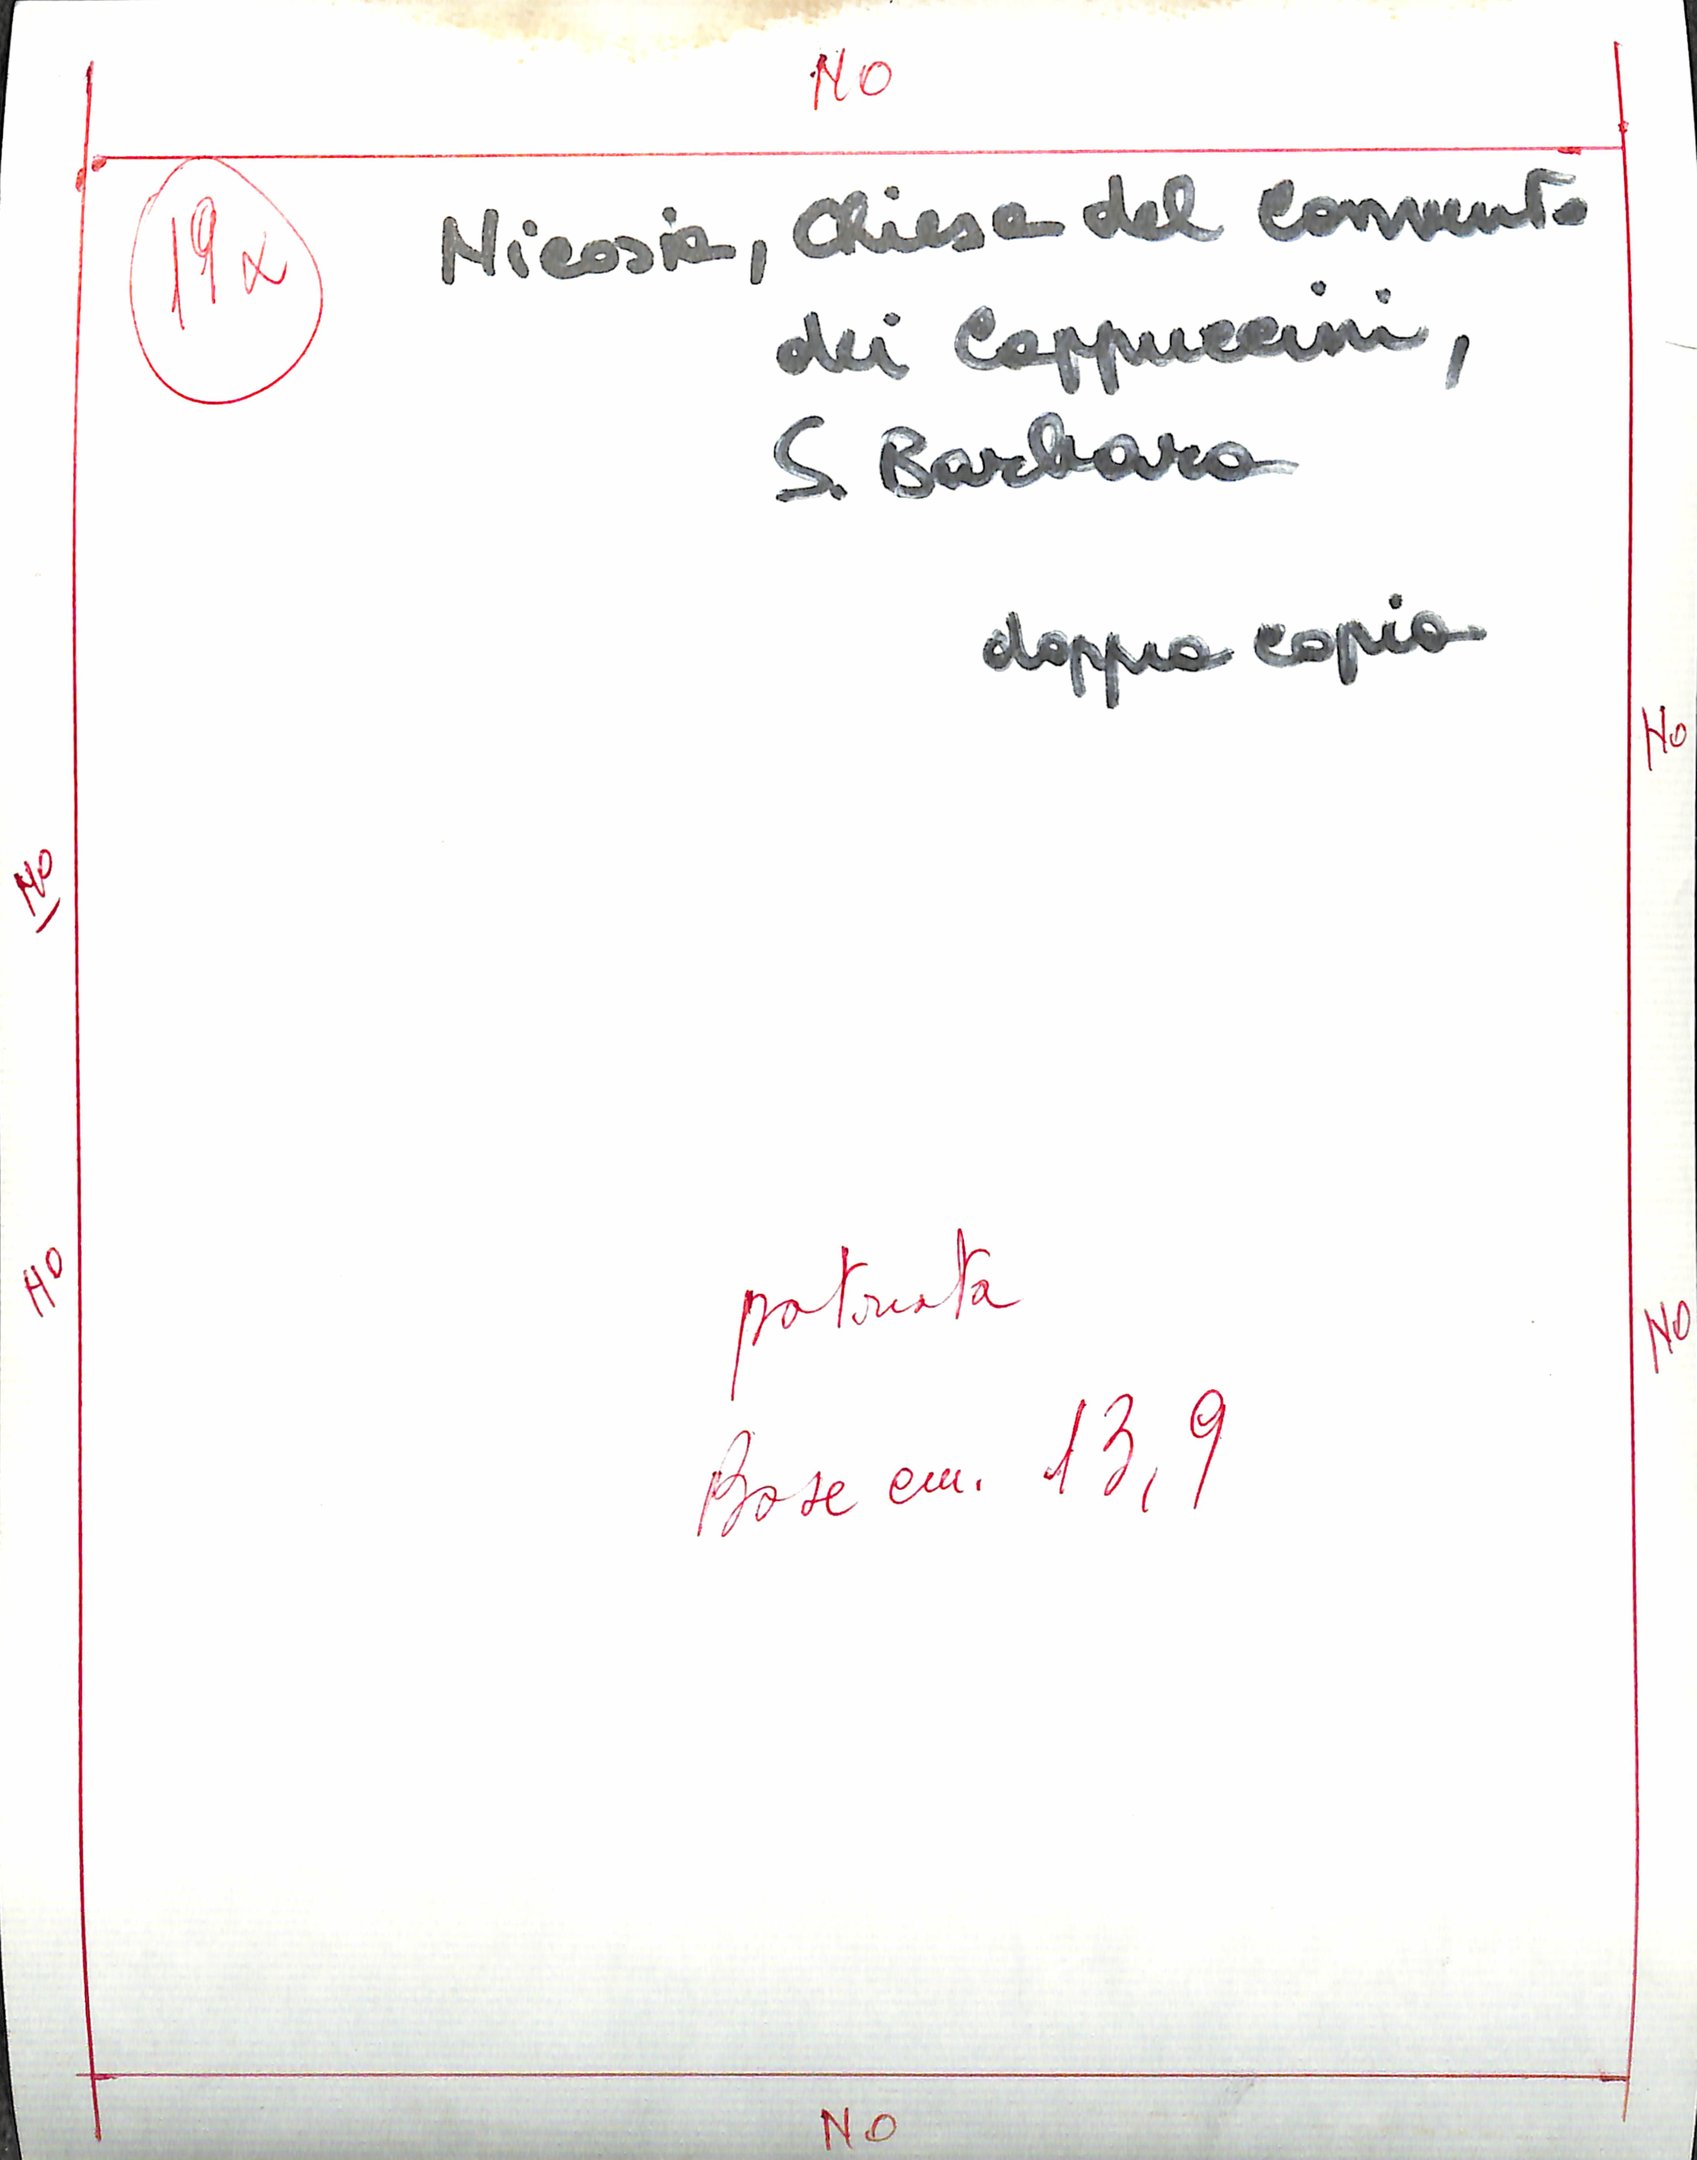 NO
19x
Nicosia, Chiesa del Convento
dei Cappuccini,
S. Barbara
doppia copia
NO
NO
NO
NO
patinata
Base cm. 13,9
NO